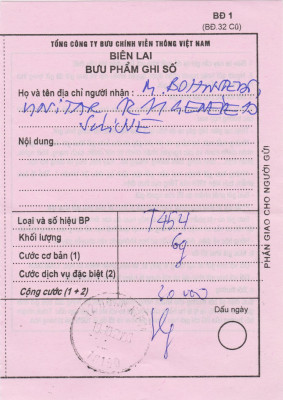 BĐ 1
(BĐ.32 Cũ)
TỔNG CÔNG TY BƯU CHÍNH VIỄN THÔNG VIỆT NAM
BIÊN LAI
BƯU PHẨM GHI SỐ
Họ và tên địa chỉ người nhận : M.
Nội dung
Loại và số hiệu BP T454
Khối lượng 6g
Cước cơ bản (1)
Cước dịch vụ đặc biệt (2)
Cộng cước (1 + 2)
Dấu ngày
PHẦN GIAO CHO NGƯỜI GỬI